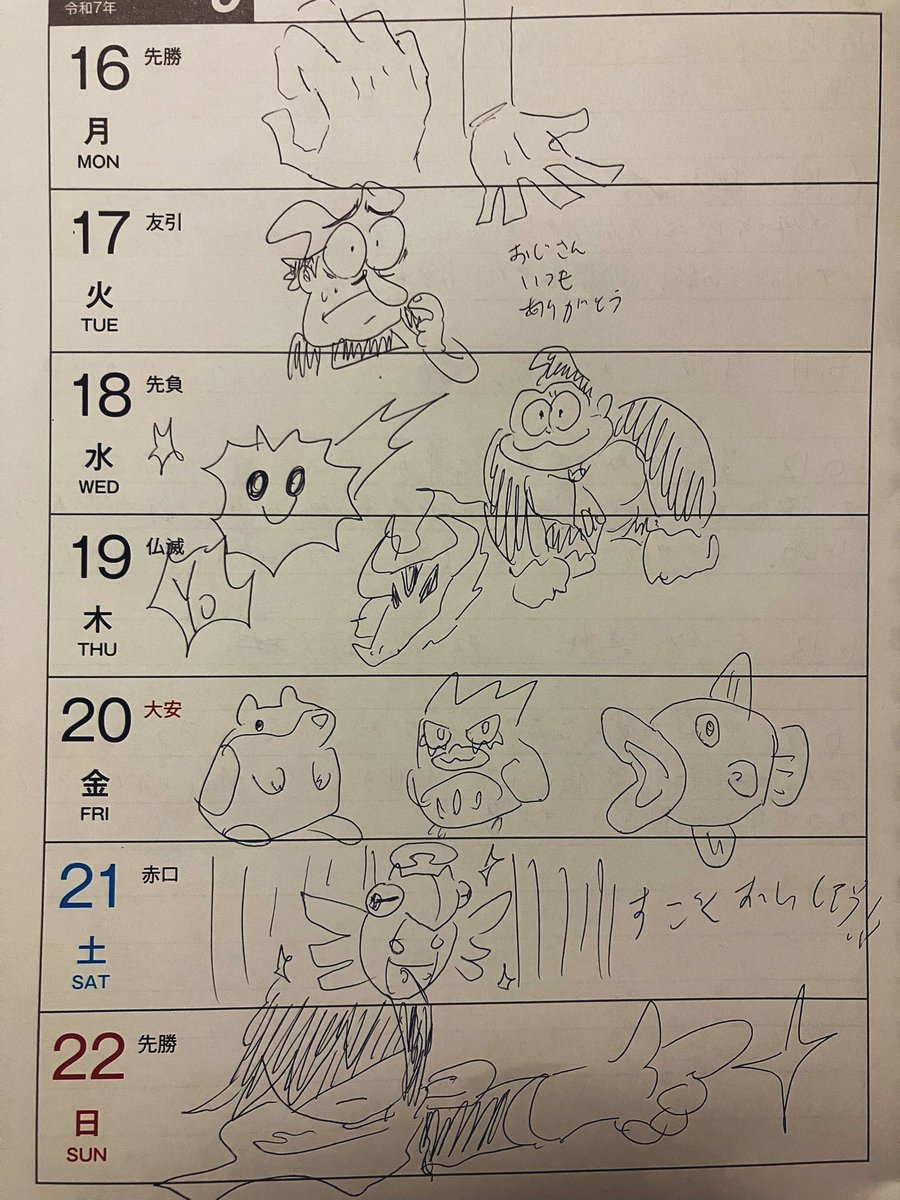 令和7年
16 先勝
月
MON
17 友引
火
TUE
おじさん
いつも
ありがとう
18 先負
水
WED
19 仏滅
木
THU
Yo
20 大安
金
FRI
21 赤口
土
SAT
22 先勝
日
SUN